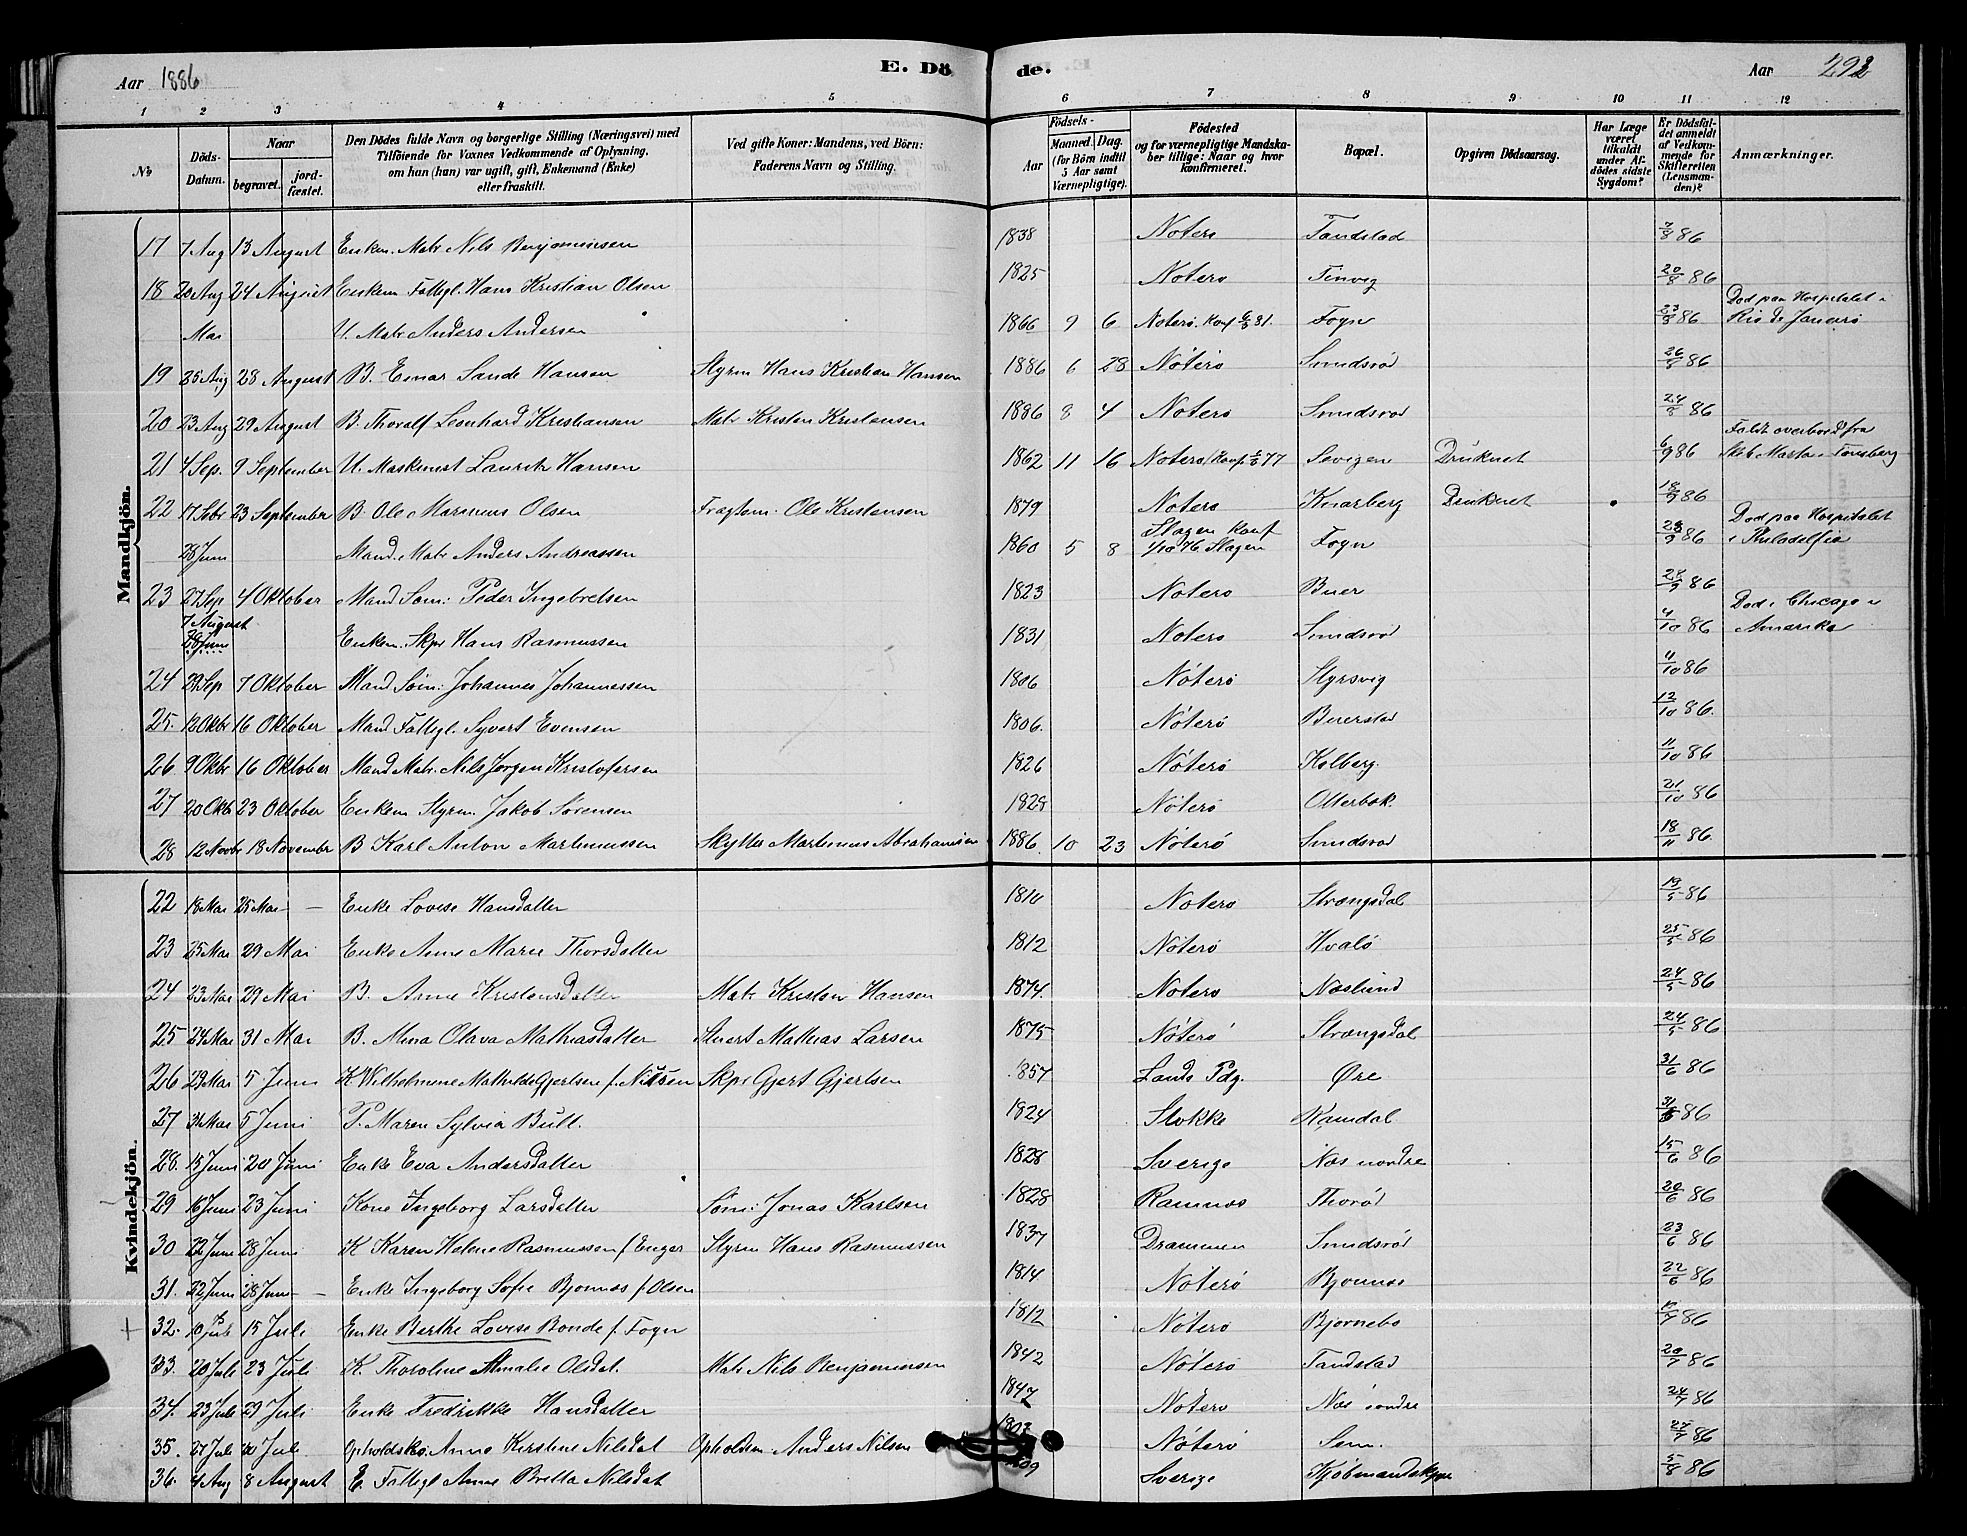 Aar 1886 E. Dö de. Aar 292
1 2 3 4 5 6 7 8 9 10 11 12
No Döds-Datum. Naar begravet. jordfæstet. Den Dödes fulde Navn og borgerlige Stilling (Næringsvei) med Tilföiende for Voxnes Vedkommende af Oplysning, om han (hun) var ugift, gift, Enkemand (Enke) eller fraskilt. Ved gifte Koner: Mandens, ved Börn: Faderens Navn og Stilling. Födsels- Aar Maaned. Dag. (for Börn indtil 5 Aar samt Værnepligtige). Födested og for værnepligtige Mandskaber tillige: Naar og hvor konfirmeret. Bopæl. Opgiven Dödsaarsag. Har Læge været tilkaldt under Afdödes sidste Sygdom? Er Dödsfaldet anmeldt af Vedkommende for Skifteretten (Lensmanden)? Anmærkninger.
Mandkjön.
17 7 Aug 13 August Enkem. Matr Nils Benjaminsen 1838 Nøterø Tandstad 7/8 86
18 20 Aug 24 August Enkem Fattigl. Hans Kristian Olsen 1825 Nøterø Tinvig 20/8 86
Mai U. Matr Anders Andersen 1866 9 6 Nøterö. Konf 81. Fogn 23/8 86 Død paa Hospitalet i Rio de Janero
19 25 Aug 28 August B. Einar Sande Hansen Styrm Hans Kristian Hansen 1886 6 28 Nøterö Smidsrød 26/8 86
20 23 Aug 29 August B. Thoralf Leonhard Kristiansen Matr Kristen Kristensen 1886 8 4 Nøterø Smidsrød 24/8 86
21 4 Sep. 9 September U. Maskinist Lauritz Hansen 1862 11 16 Nøterø Konf. 77 Sevigen Druknet 6/9 86 Faldt overbord fra Skib Marta i Tønsberg
22 17 Sbr 23 September B Ole Marinius Olsen Fragtem. Ole Kristensen 1879 Nøterø Knarberg Druknet 18/9 86
28 Juni Mand. Matr Anders Andreassen 1860 5 8 Slagen Konf 1/10 76 Slagen Fogn 28/9 86 Død paa Hospitalet i Philadelfia
23 27 Sep 4 Oktober Mand Søm: Peder Ingebretsen 1823 Nøterø Buer 28/9 86
7 August 28 Juni Enkem. Skpr Hans Rasmussen 1831 Nøterø Smidsrød 4/10 86 Død i Chicago i Amerika
24 29 Sep 7 Oktober Mand Søm: Johannes Johannessen 1806 Nøterö Styrsvig 11/10 86
25. 12 Oktbr 16 Oktober Mand Fattigl. Syvert Evensen 1806. Nøterö Buerstad 12/10 86.
26 9 Oktbr 16 Oktober Mand Matr. Nils Jørgen Kristofersen 1826 Nøterö Kolberg. 11/10 86
27 20 Oktb 23 Oktober Enkem Styrm Jakob Sørensen 1828 Nøterö Otterbæk 21/10 86
28 12 Novbr 18 November B Karl Anton Martinussen Skytter Martinus Abrahamsen 1886. 10 23 Nøterö Smidsrød 18/11 86.
Kvindekjön.
22 18 Mai 25 Mai — Enke Lovise Hansdatter 1810 Nøterø Strængsdal 19/5 86
23 25 Mai 29 Mai Enke Anne Marie Thorsdatter 1812 Nøterö Hvalö 25/5 86
24 23 Mai 29 Mai B. Anne Kristensdatter Matr Kristen Hansen 1874. Nøterø Næslund 24/5 86
25 24 Mai 31 Mai B. Alma Olava Mathiasdatter Stuert Mathias Larsen 1875 Nøterö Strængsdal 24/5 86
26 29 Mai 5 Juni K Vilhelmine Mathilde Gjertsen f. Nilsen Skpr Gjert Gjertsen 1857 Lands Pdg. Øre 31/6 86
27 31 Mai 5 Juni P. Maren Sylvia Bull 1824 Stokke Kamdal 31/5 86
28. 15 Juni 20 Juni Enke Eva Andersdatter 1828 Sverige Næs nordre 15/6 86
29 16 Juni 23 Juni Kone Ingeborg Larsdatter Søm: Jonas Karlsen 1828 Ramnæs Thorød 20/6 86
30 22 Juni 28 Juni K Karen Helene Rasmussen f Enger Styrm Hans Rasmussen 1837 Drammen Smidsrød 23/6 86
31. 22 Juni 28 Juni — Enke Ingeborg Sofie Bjønnes f. Olsen 1814 Nøterö Bjønnes 22/6 86
+ 32. 10 Juli 15 Juli Enke Berthe Lovise Bonde f. Fogn 1812 Nøterö Bjørnebo 86
33. 20 Juli 23 Juli K. Thoroline Amalie Olsdat. Matr Nils Benjaminsen 1842 Nøterö Tandstad 20/7 86
34. 23 Juli 29 Juli Enke Fredrikke Hansdatter 1847 Nøterø Næs søndre 24/7 86
35. 27 Juli 30 Juli Opholdsko. Anne Kirstine Nilsdat Opholdsm. Anders Nilsen 1803 Nøterö Sem. 27/7 86
36. 4 Aug 8 August E. Fattigl Anne Britta Nilsdat 09 Sverige Kjøbmandskjær 5/8 86